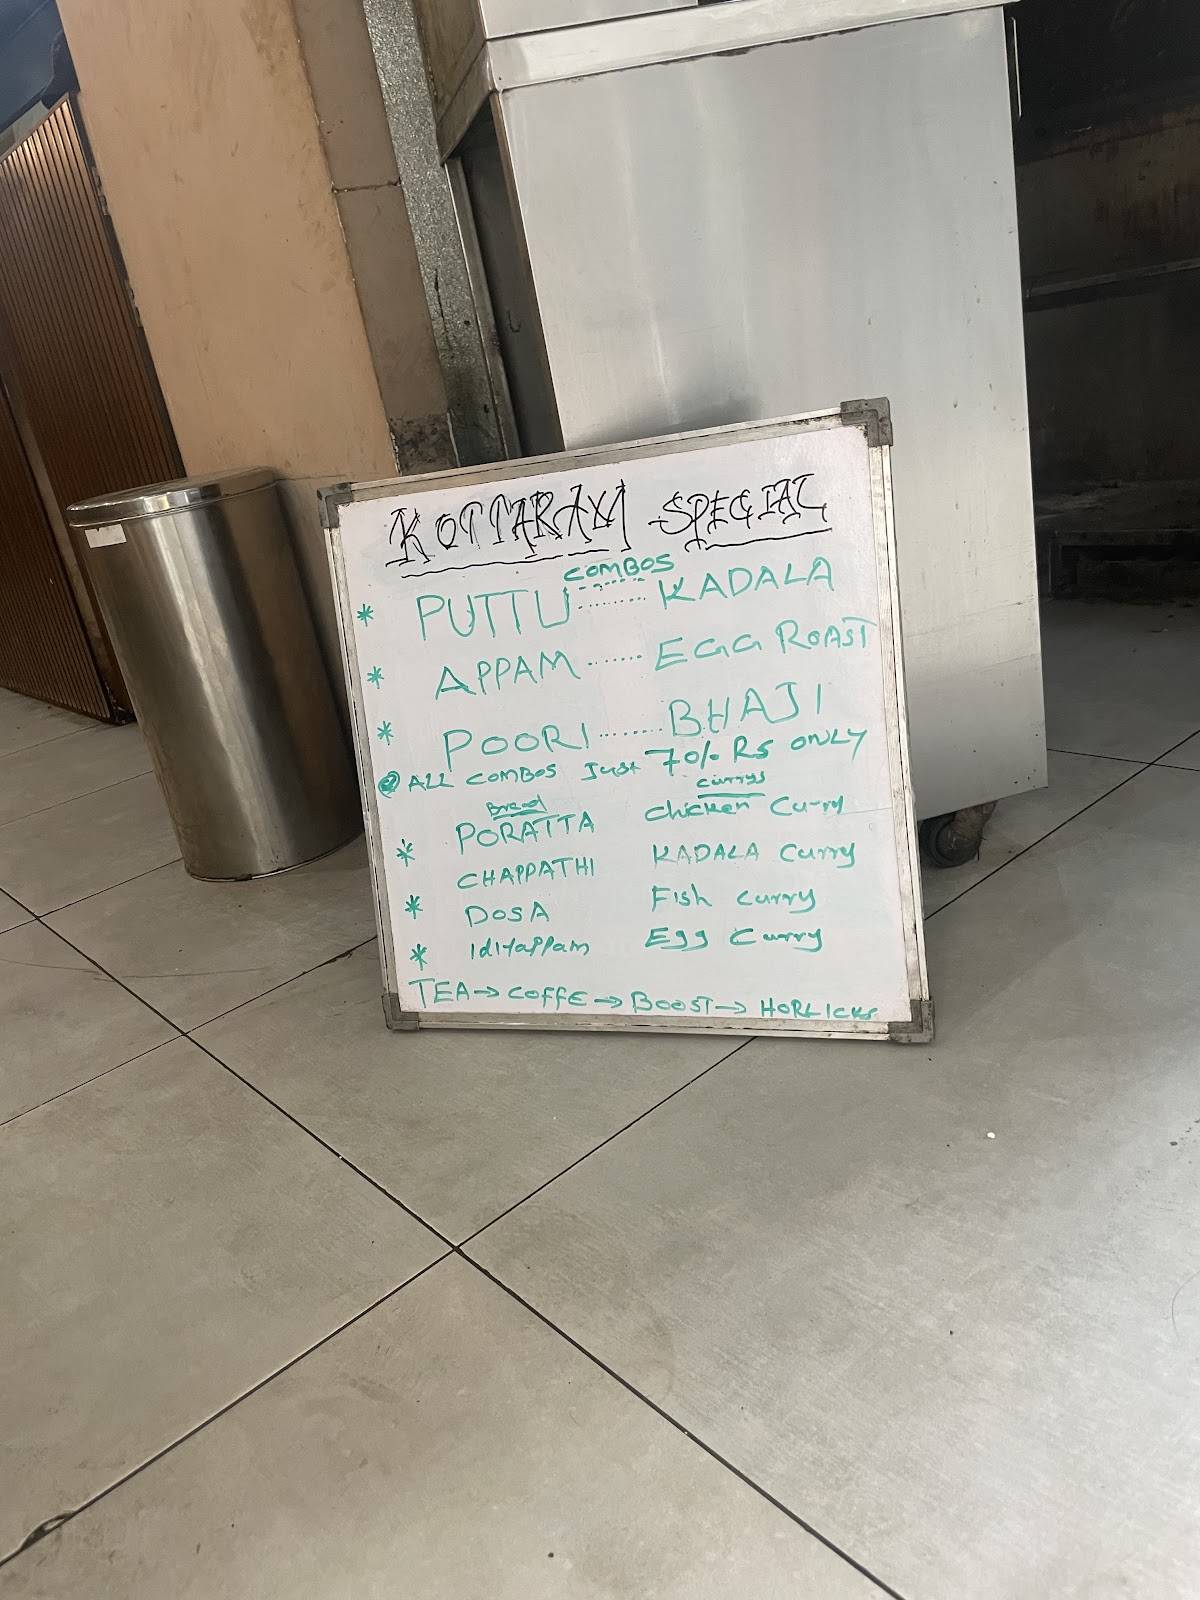 KOTTARAM SPECIAL
COMBOS
* PUTTU ........ KADALA
* APPAM ....... EGG ROAST
* POORI ........ BHAJI
@ ALL COMBOS Just 70/- RS ONLY
Bread currys
* PORATTA chicken Curry
CHAPPATHI KADALA Curry
* DOSA Fish curry
* Idiyappam Egg Curry
TEA → COFFE → BOOST → HORLICKS